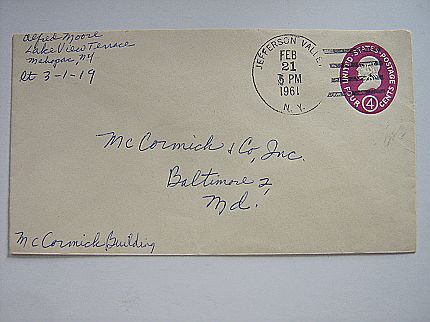 Alfred Moore
Lake View Terrace
Mahopac, NY
Rt 3-1-19
JEFFERSON VALLE
FEB
21
5 PM
1961
N. Y.
UNITED STATES POSTAGE
4
FOUR CENTS
McCormick & Co, Inc.
Baltimore 2
Md.
McCormick Building